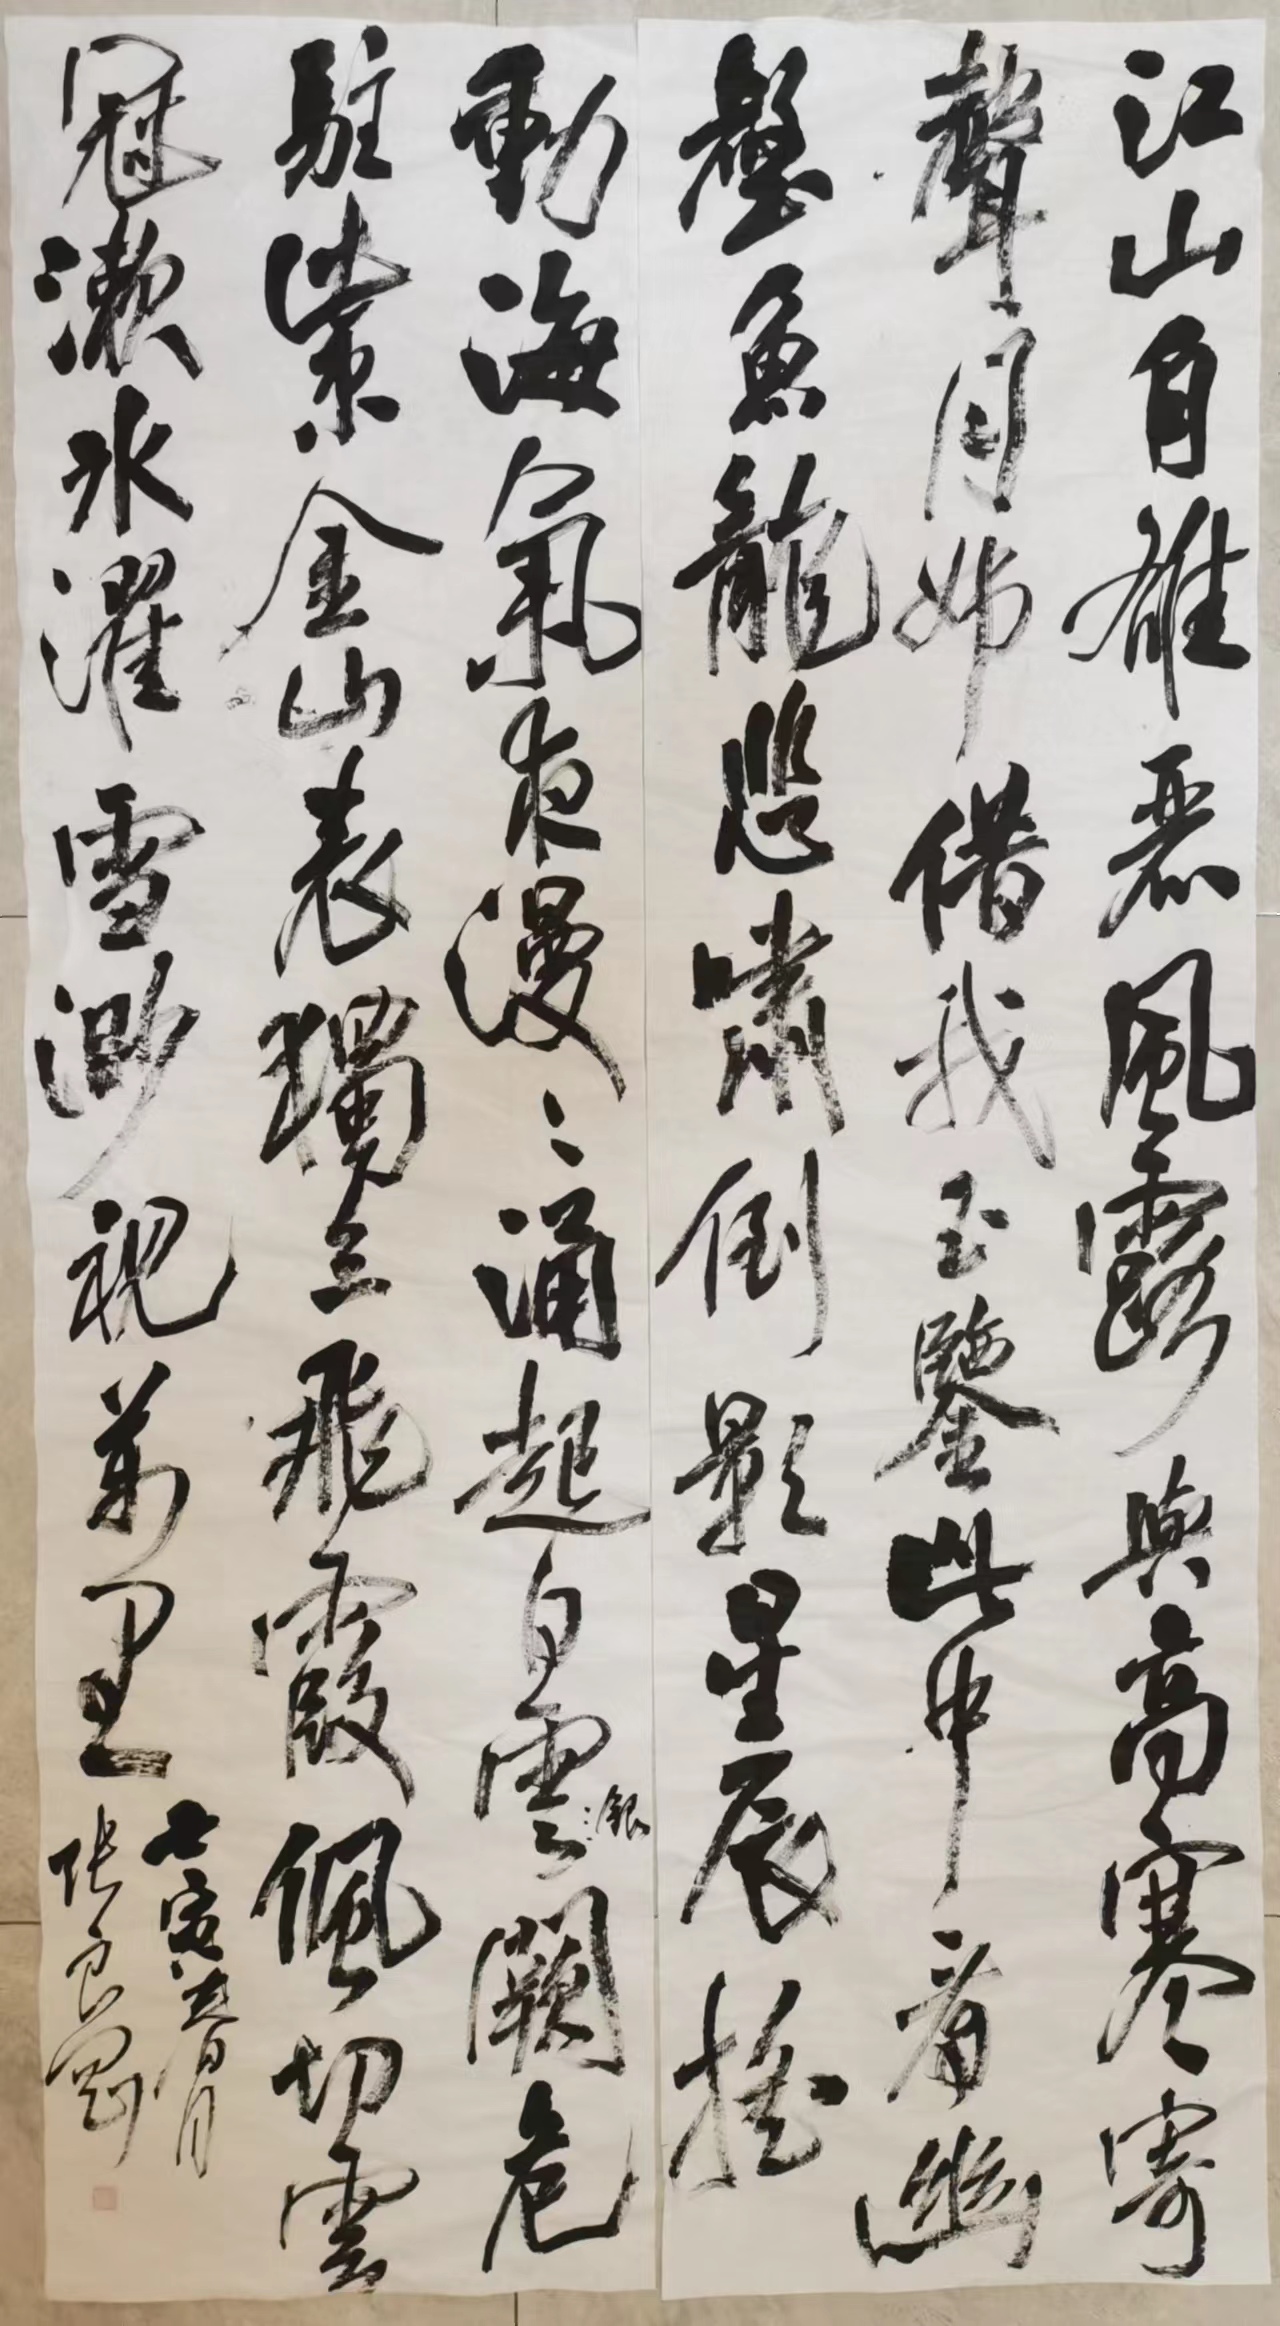 江山自雄麗風露與高寒寄
聲月姊借我玉鑒此中看幽
壑魚龍悲嘯倒影星辰搖
動海氣夜漫〻涌起白雲闕危
銀
駐紫金山表獨立飛霞佩切雲
冠漱冰濯雪渺視萬里
寅春月
張良